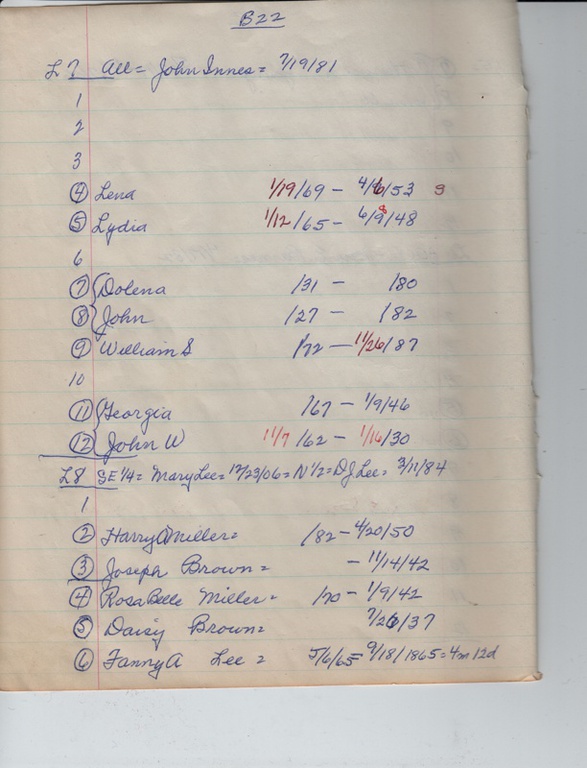 B22
L7 All = John Innes = 7/19/81
1
2
3
④ Lena 1/19/69 - 4/6/53 9
⑤ Lydia 1/12/65 - 6/9/48 8
6
⑦ Dolena /31 - /80
⑧ John /27 - /82
⑨ William S 1/72 - 11/26/87
10
⑪ Georgia /67 - 1/9/46
⑫ John W 11/7/62 - 1/16/30
L8 SE 1/4 = Mary Lee = 12/23/06 = N 1/2 = D J Lee = 3/11/84
1
② Harry A Miller = /82 - 4/20/50
③ Joseph Brown = - 11/14/42
④ Rosa Belle Miller = /70 - 1/9/42
⑤ Daisy Brown = 7/26/37
⑥ Fanny A Lee = 5/6/65 = 9/18/1865 = 4m 12d